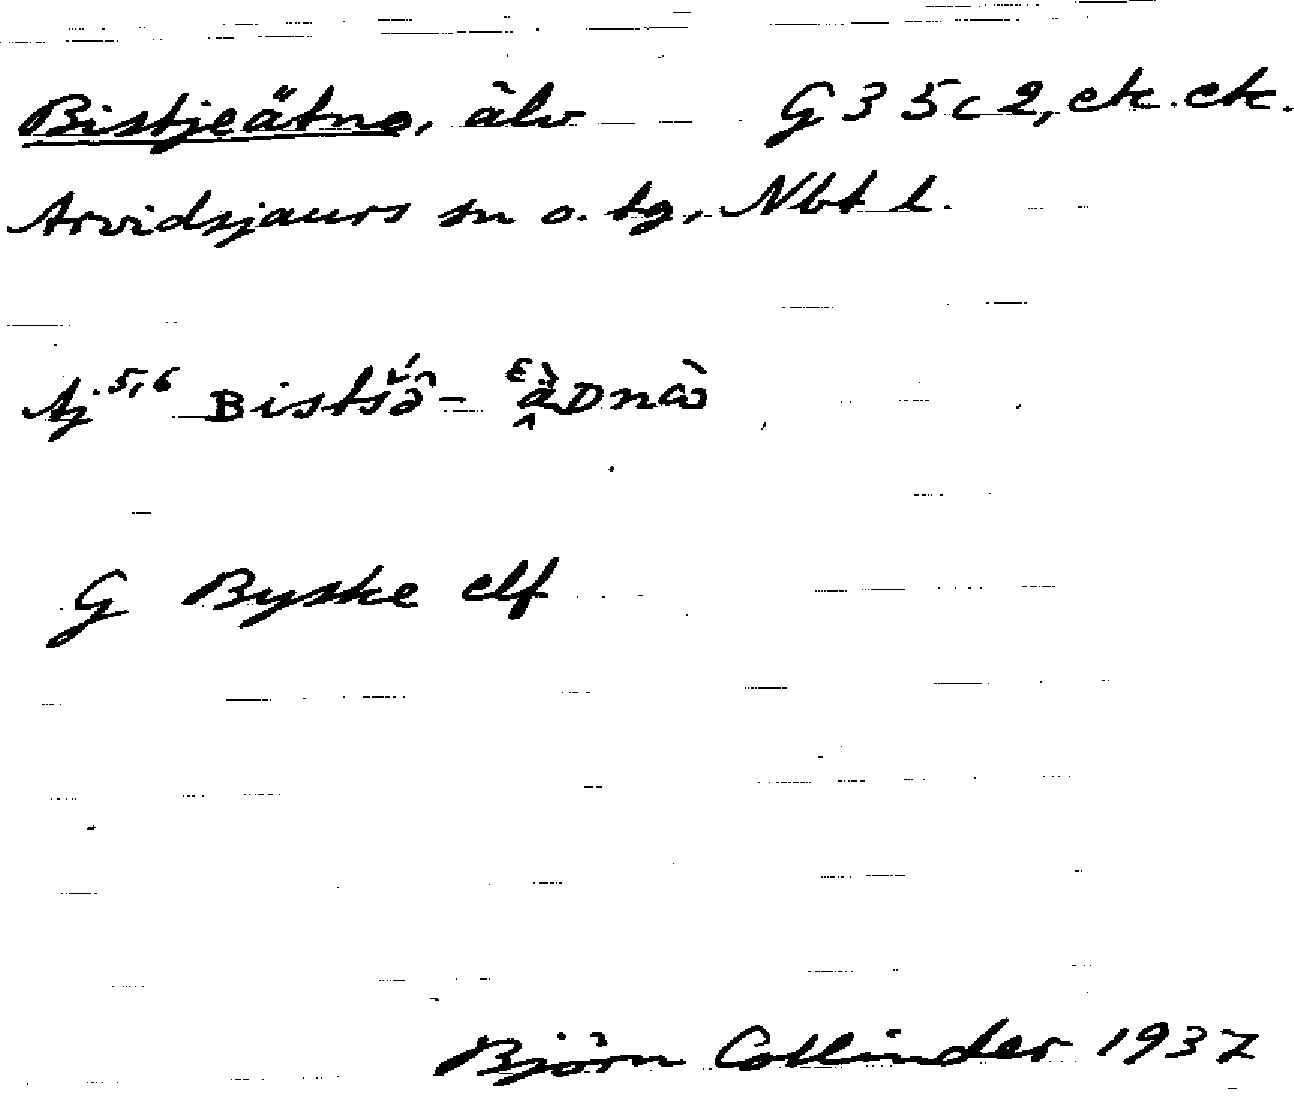 Bistjeätno, älv G 35c2, etc. etc.
Arvidsjaurs sn o. tg, Nbt l.
Aj. 5,6
G Byske elf
Björn Collinder 1937